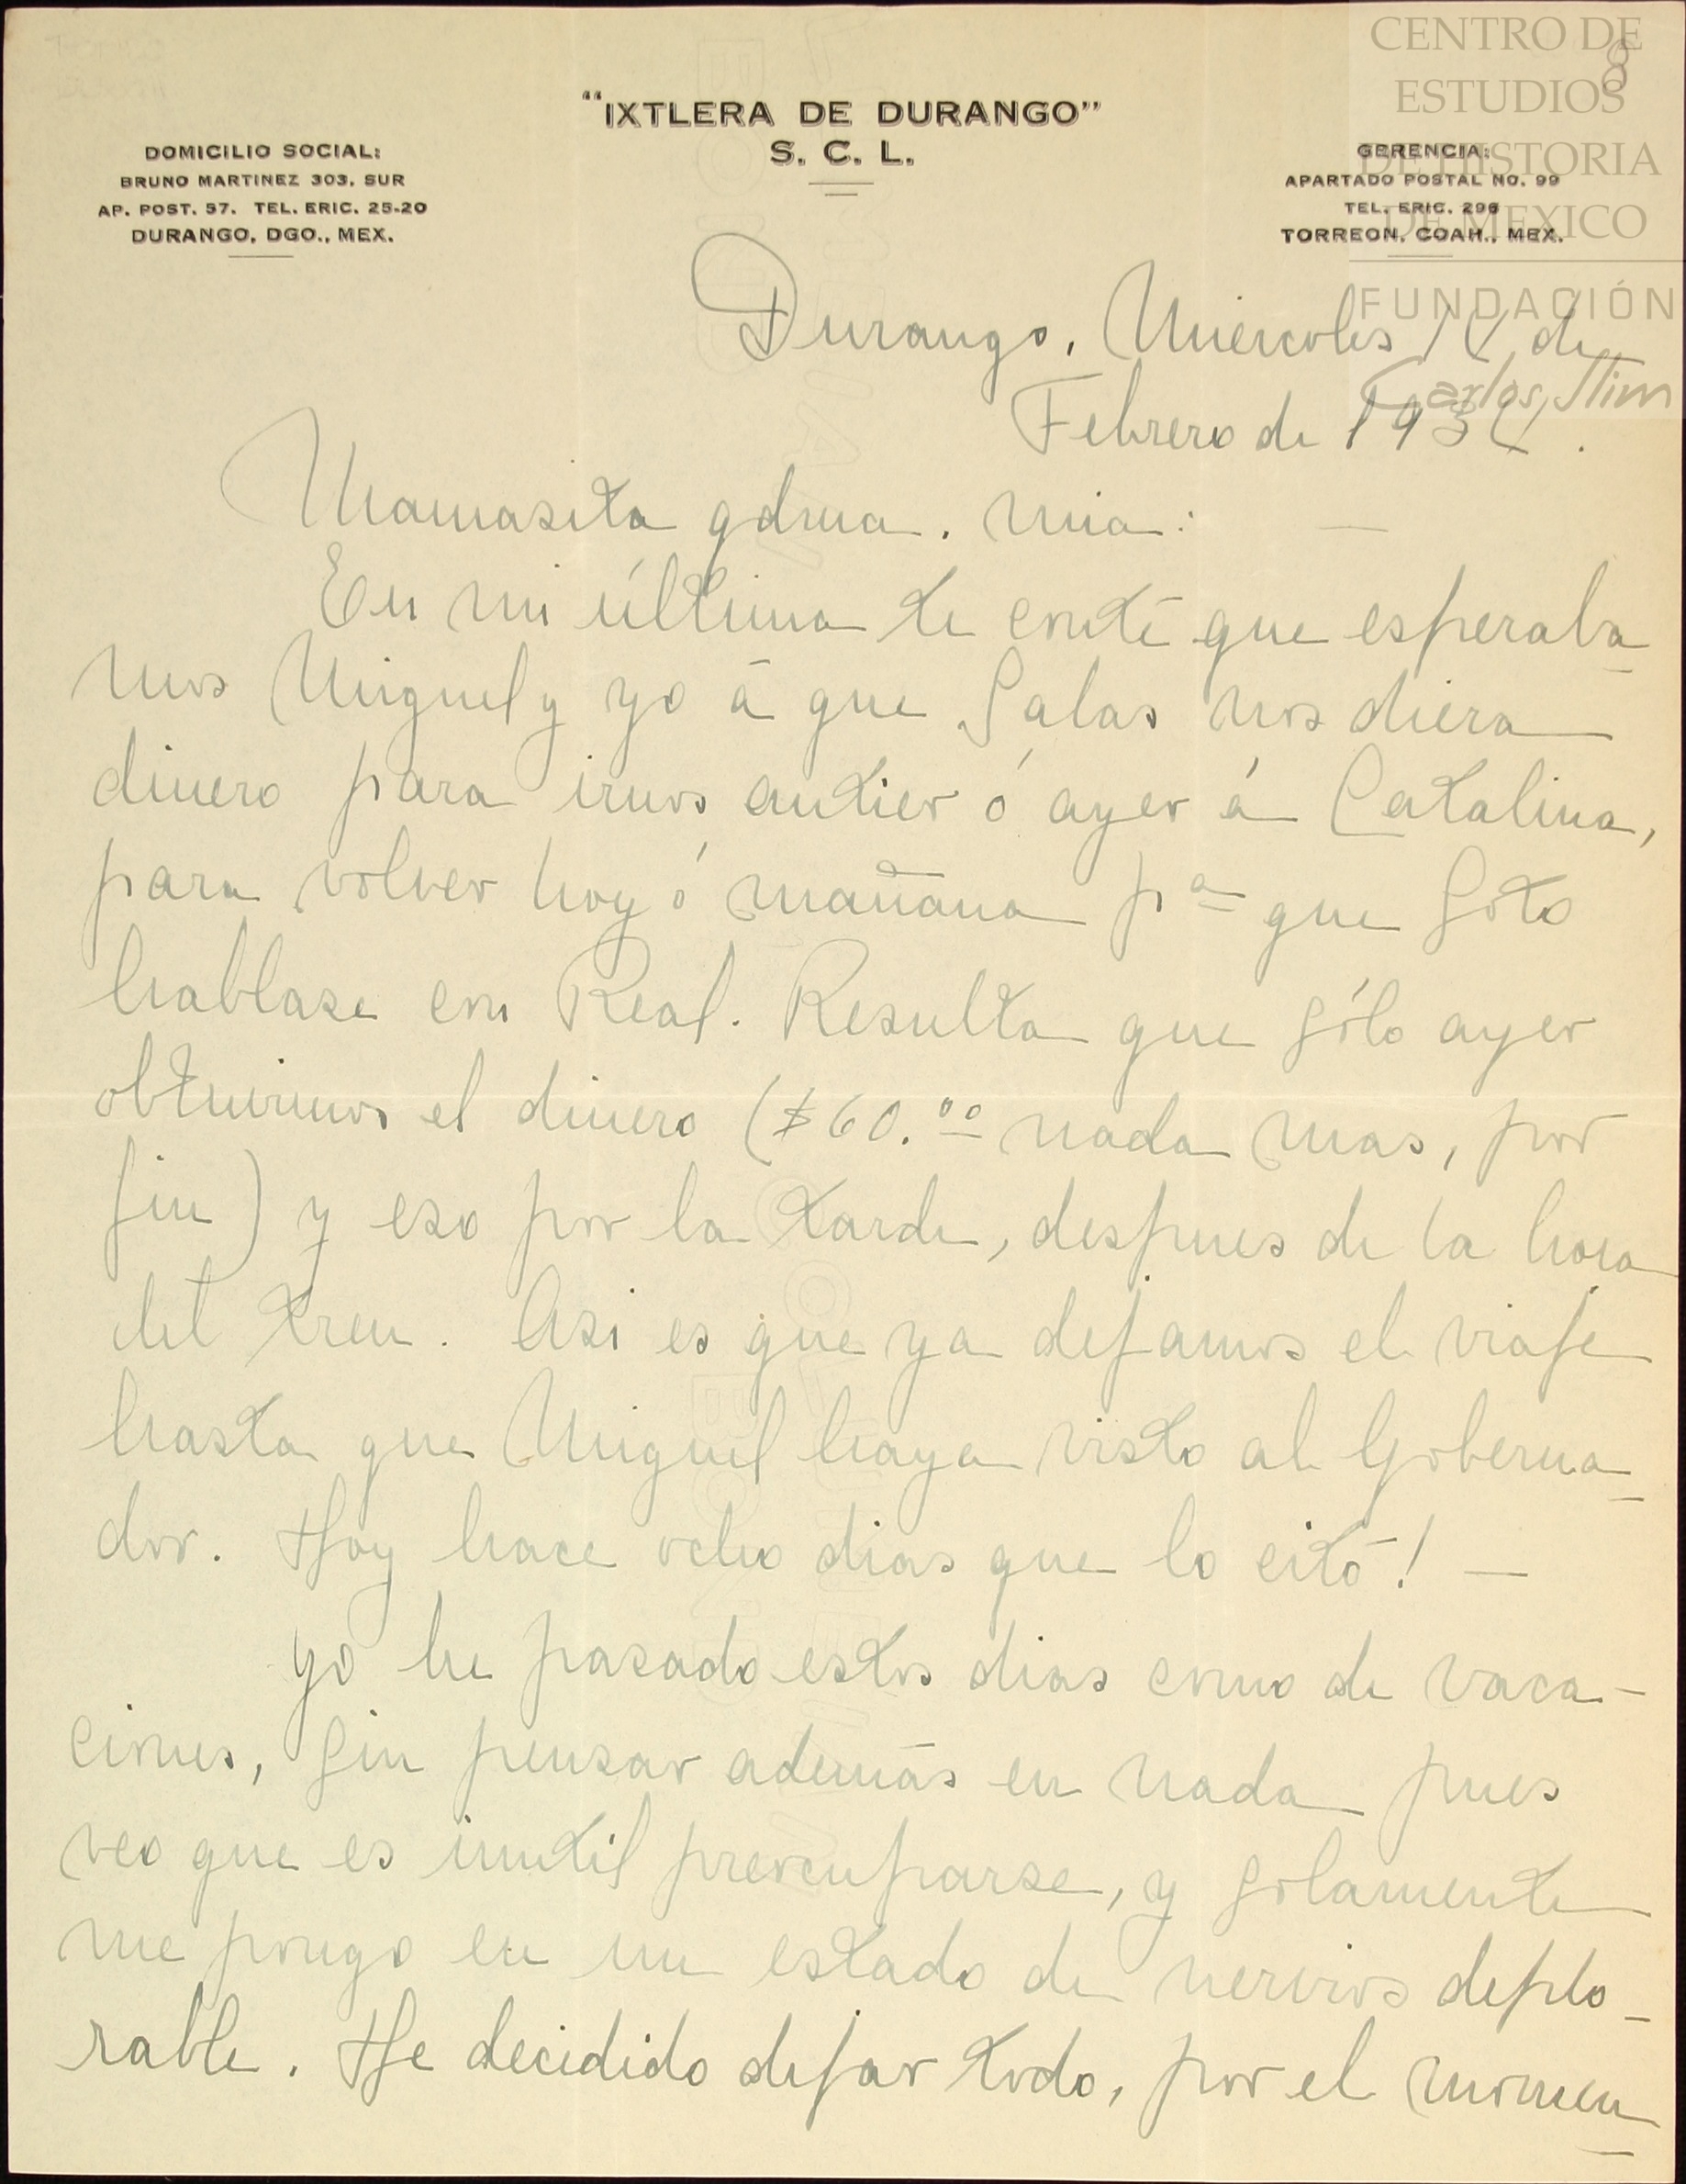 CENTRO DE
ESTUDIOS
DE HISTORIA
DE MEXICO
FUNDACIÓN
Carlos Slim
8
"IXTLERA DE DURANGO"
S. C. L.
DOMICILIO SOCIAL:
BRUNO MARTINEZ 303. SUR
AP. POST. 57. TEL. ERIC. 25-20
DURANGO, DGO., MEX.
GERENCIA:
APARTADO POSTAL NO. 99
TEL. ERIC. 296
TORREON, COAH., MEX.
Durango, Miercoles 14 de
Febrero de 1934.
Mamasita qdma. mia: —
En mi última te conté que esperaba-
mos Miguel y yo á que Salas nos diera
dinero para irnos antier ó ayer á Catalina,
para volver hoy ó mañana pª que Soto
hablase con Real. Resulta que sólo ayer
obtuvimos el dinero ($60.00 nada mas, por
fin) y eso por la tarde, despues de la hora
del tren. Asi es que ya dejamos el viaje
hasta que Miguel haya visto al Goberna-
dor. Hoy hace ocho dias que lo citó! —
Yo he pasado estos dias como de vaca-
ciones, sin pensar además en nada pues
veo que es inutil preocuparse, y solamente
me pongo en un estado de nervios deplo-
rable. He decidido dejar todo, por el momen-